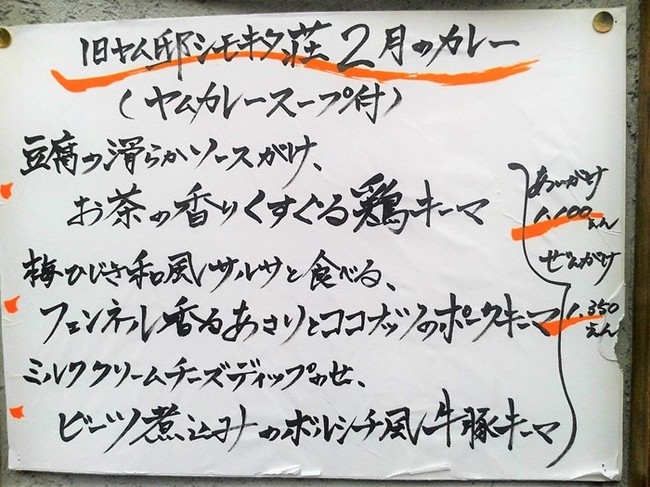 旧ヤム邸シモキタ荘2月のカレー
(ヤムカレースープ付)
豆腐の滑らかソースがけ、
お茶の香りくすぐる鶏キーマ
梅ひじき和風サルサと食べる、
フェンネル香るあさりとココナッツのポークキーマ
ミルククリームチーズディップのせ、
ビーツ煮込みのボルシチ風牛豚キーマ
あいがけ
1.100えん
ぜんがけ
1.350えん